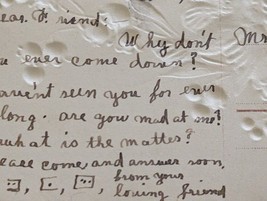 Dear Friend
Why don't
u ever come down?
aven't seen you for ever
long. are you mad at me?
what is the matter?
lease come and answer soon,
from your
loving friend
Mr